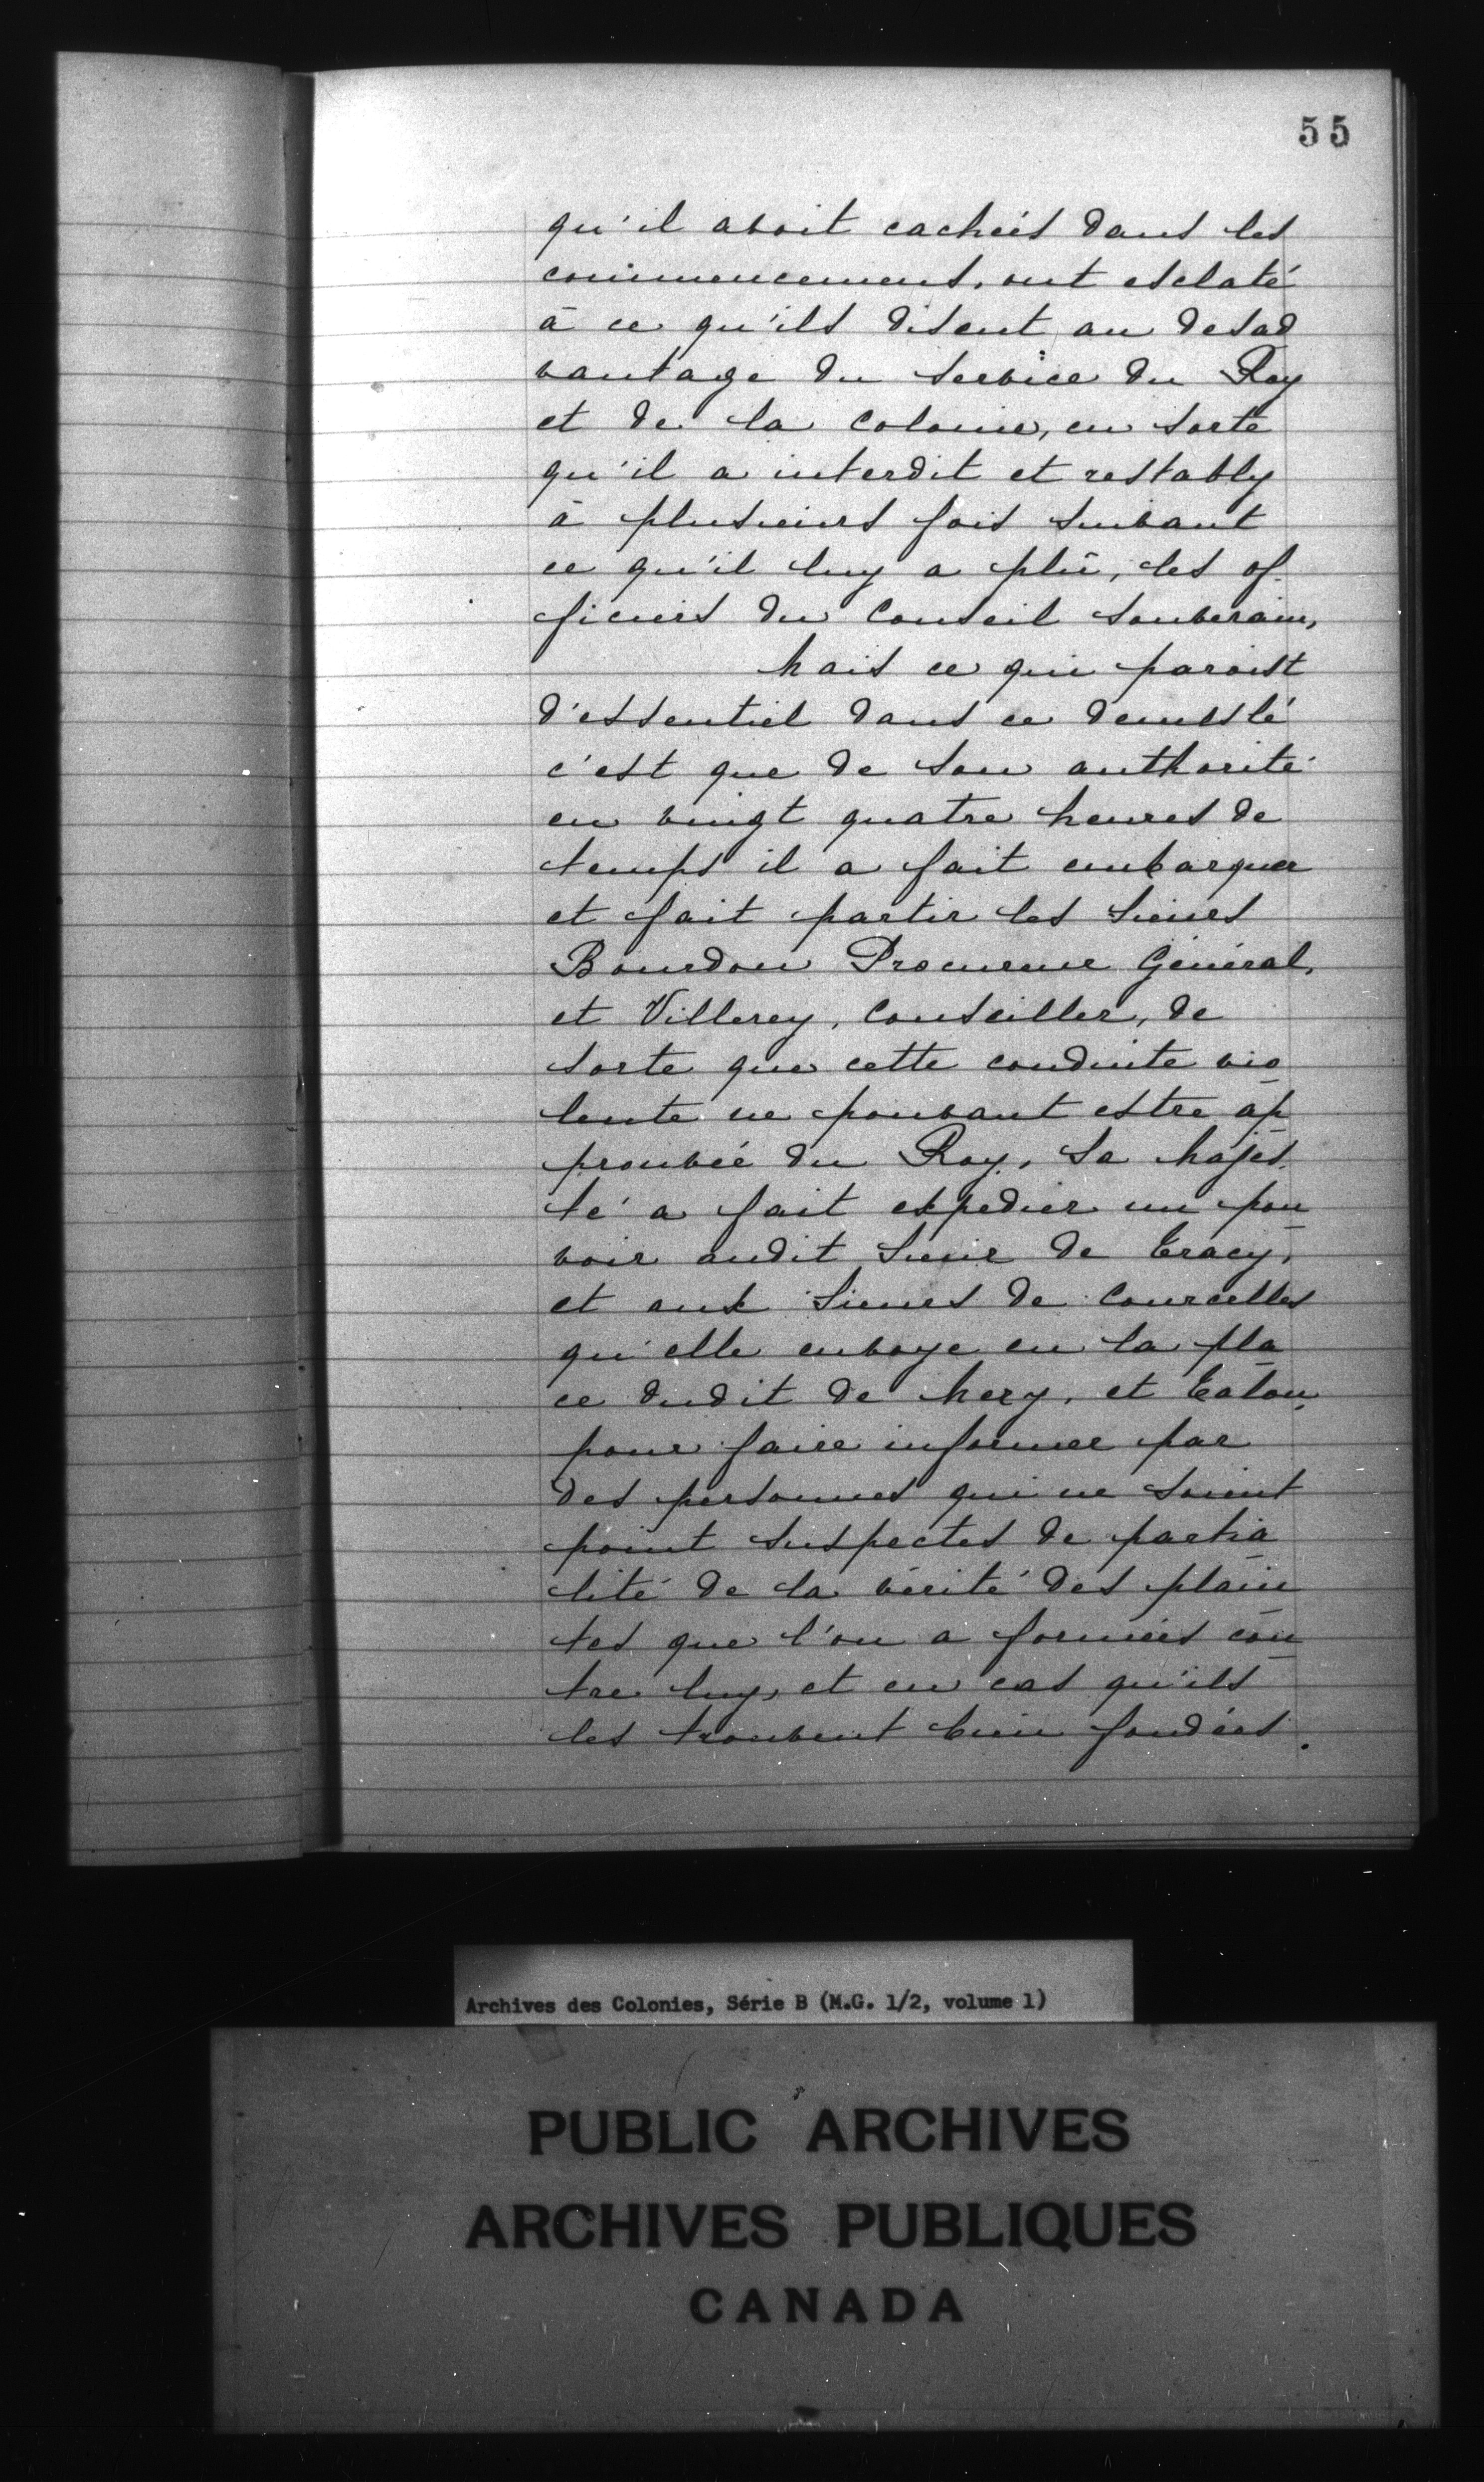 55
qu'il avoit cachéis dans les
commencemens, ont esclaté
à ce qu'ils disent au desad
vantage du service du Roy
et de la Colonie, en sorte
qu'il a interdit et restably
à plusieurs fois suivant
ce qu'il luy a plû, les of-
ficiers du Conseil Souverain,
Mais ce qui paroist
d'essentiel dans ce demeslé
c'est que de son authorité
en vingt quatre heures de
temps il a fait embarquer
et fait partir les Sieurs
Bourdon Procureur Général,
et Villerey, Conseiller, de
sorte que cette conduite vio
lente ne pouvant estre ap
prouvée du Roy, Sa Majes-
té a fait expedier un pou
voir audit Sieur de Tracy,
et aux Sieurs de Courcelles
qu'elle envoye en la pla
ce dudit de Mezy, et Talon,
pour faire informer par
des personnes qui ne soient
point suspectes de partia
lité de la vérité des plain
tes que l'on a formées con
tre luy, et en cas qu'ils
les trouvent bien fondées.
Archives des Colonies, Série B (M.G. 1/2, volume 1)
PUBLIC ARCHIVES
ARCHIVES PUBLIQUES
CANADA